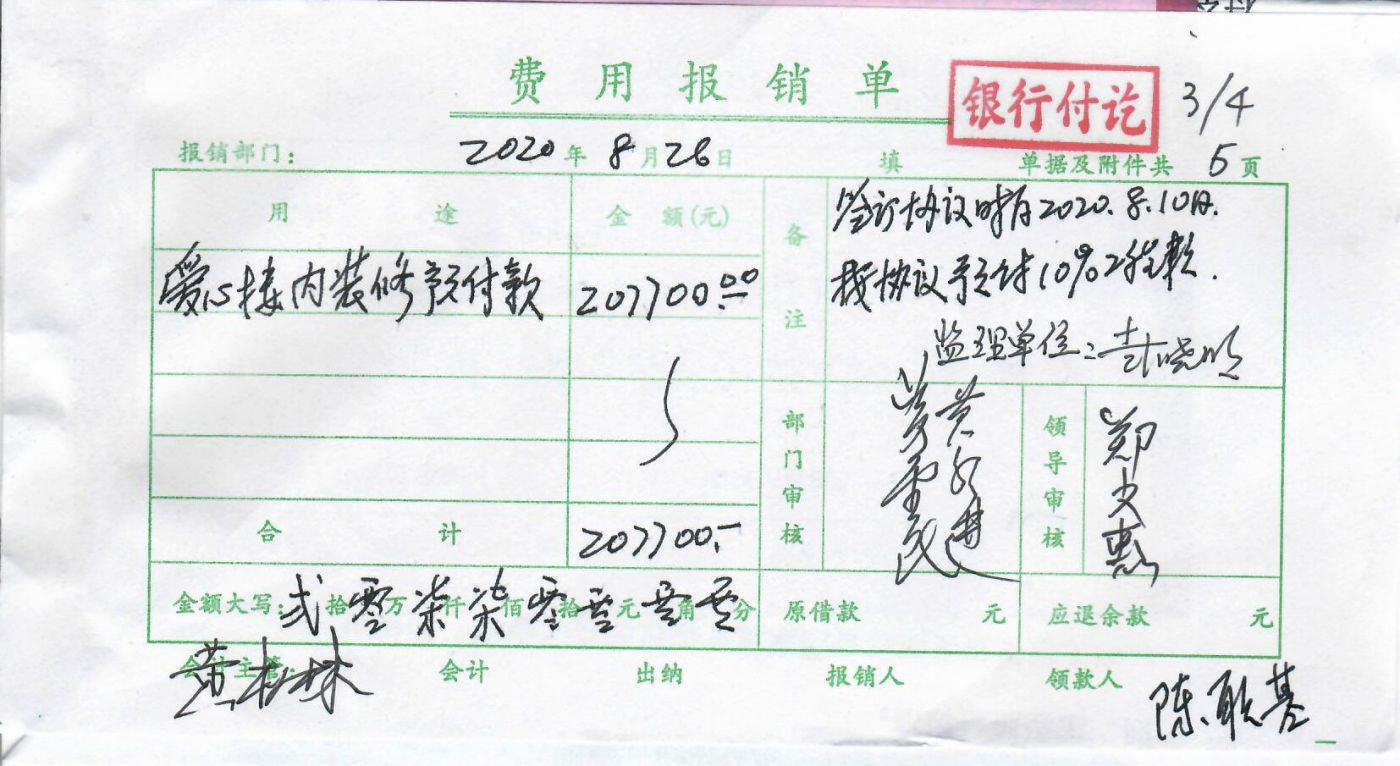 费用报销单
银行付讫
3/4
报销部门： 2020年8月26日 填 单据及附件共 5 页
用途 金额(元) 备注
签订协议时间2020.8.10日.
爱心楼内装修预付款 207700.00
按协议预付10%工程款.
监理单位：
部门审核 领导审核
郑文惠
合计 207700.-
金额大写：弍拾零万柒仟柒佰零拾零元零角零分 原借款 元 应退余款 元
会计主管 会计 出纳 报销人 领款人
黄松林
陈耿基